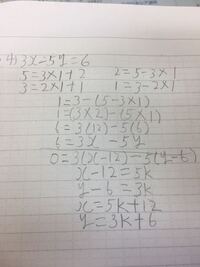 4) 3x-5y=6
5=3×1+2 2=5-3×1
3=2×1+1 1=3-2×1
1=3-(5-3×1)
1=(3×2)-(5×1)
6=3(12)-5(6)
6=3x -5y
0=3(x-12)-5(y-6)
x-12=5k
y-6=3k
x=5k+12
y=3k+6